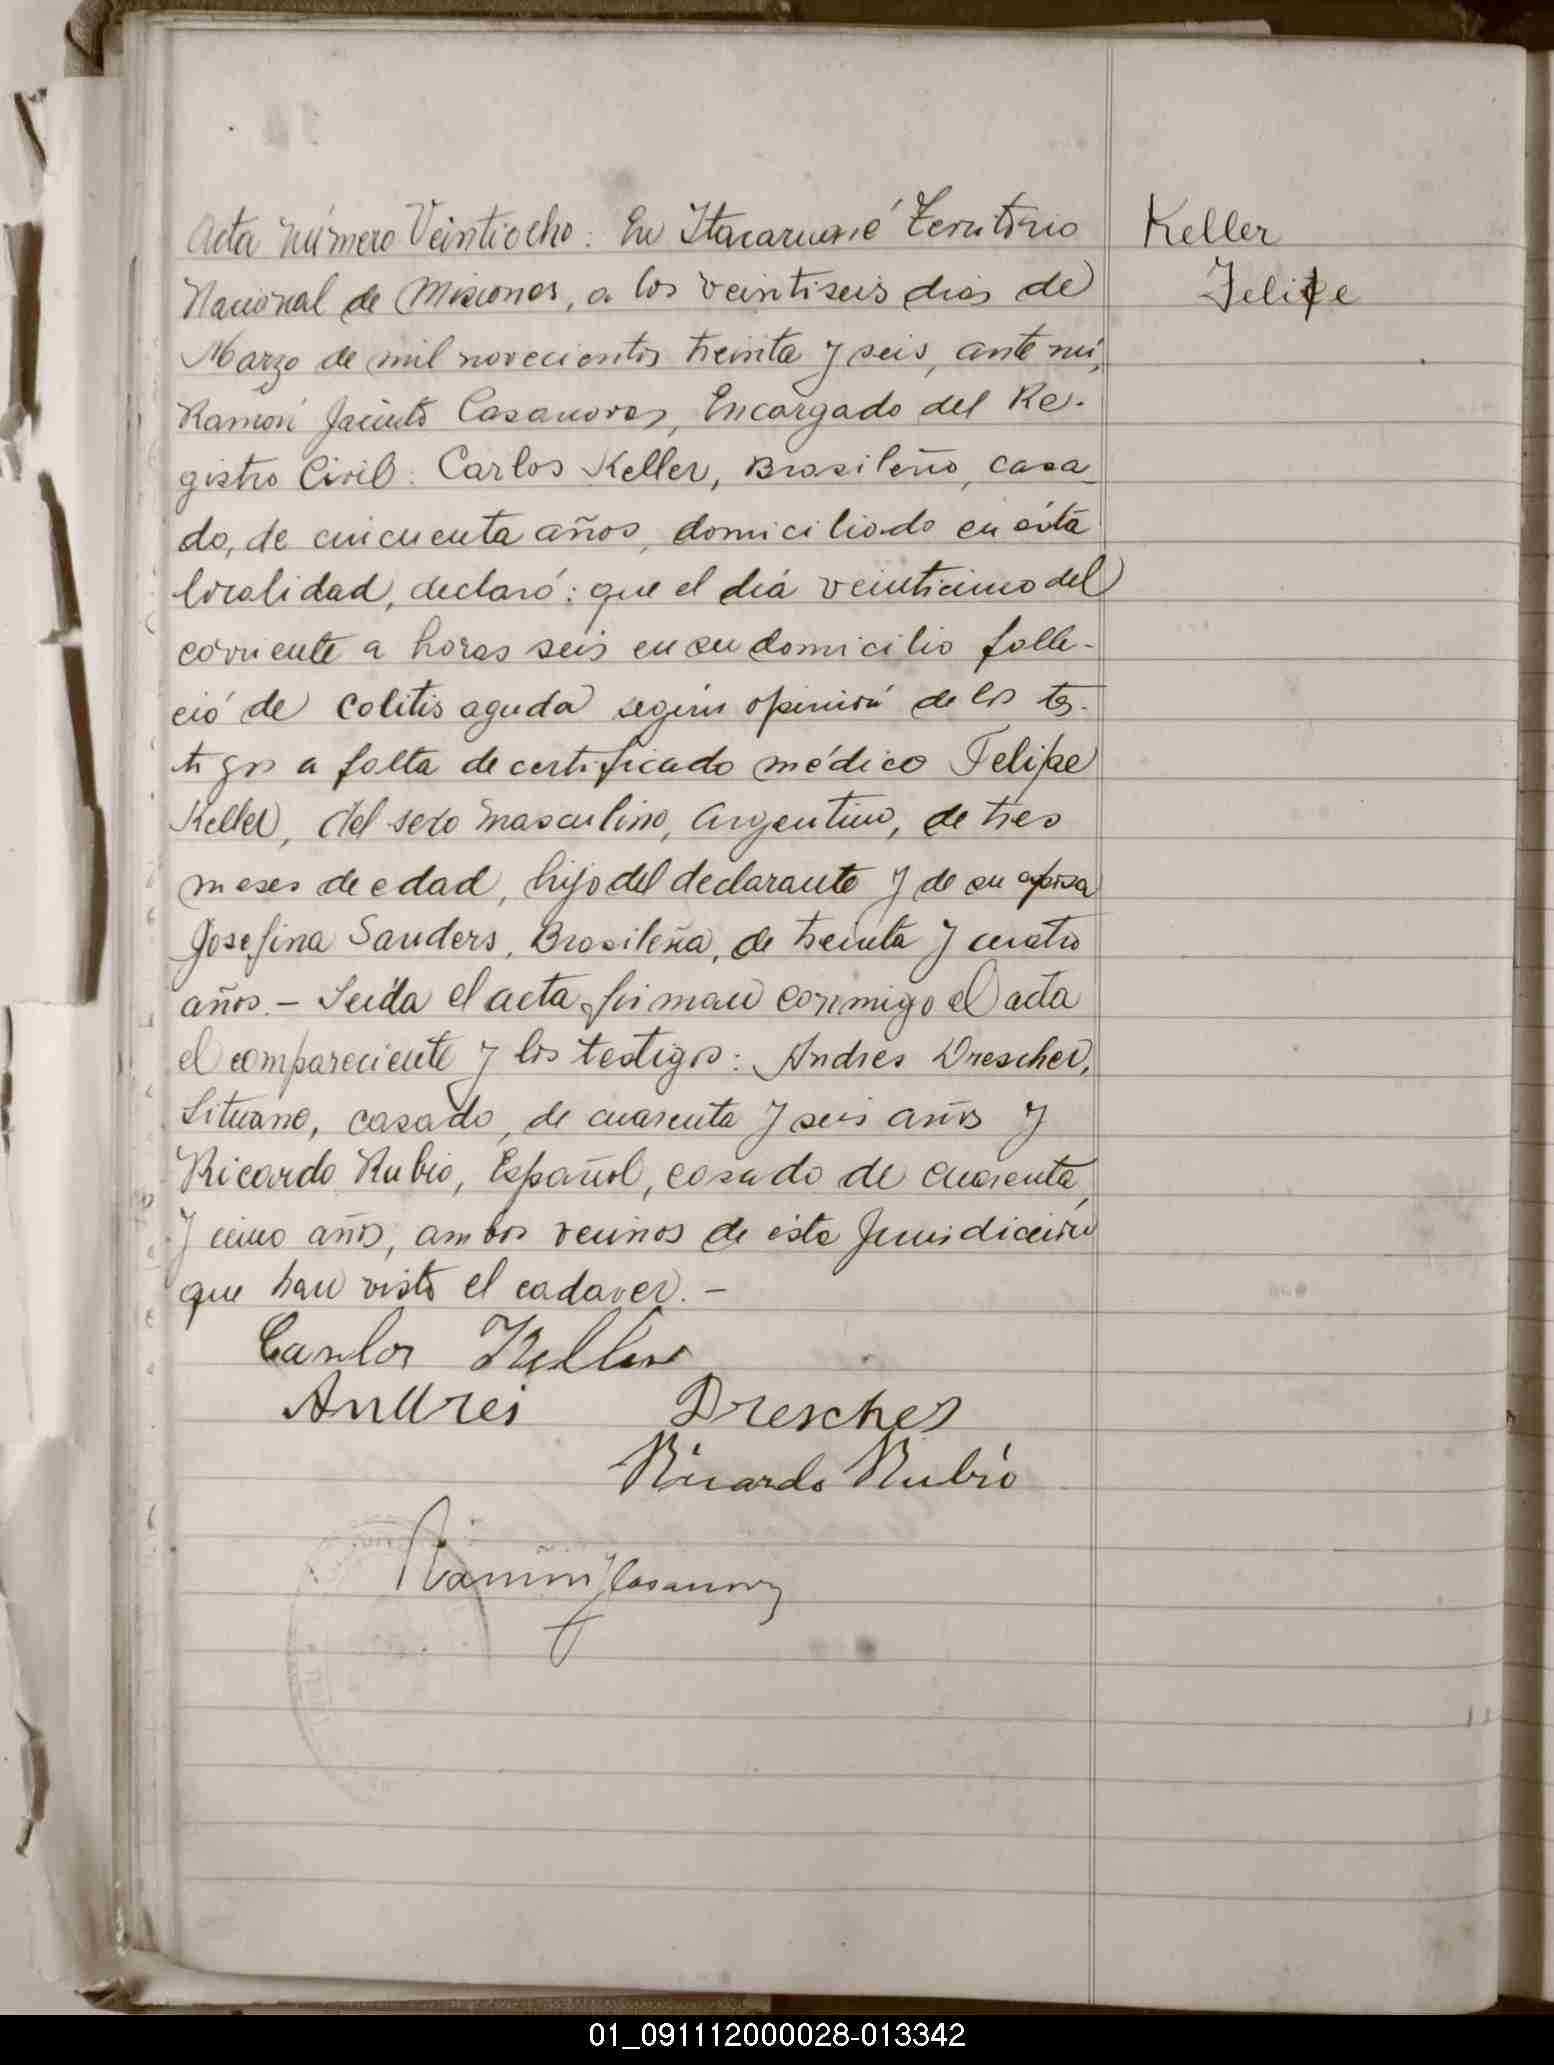 Acta número Veintiocho: En Itacaruaré Territorio
Nacional de Misiones, a los veintiseis dias de
Marzo de mil novecientos treinta y seis, ante mí,
Ramón Jacinto Casanovas, Encargado del Re-
gistro Civil: Carlos Keller, Brasileño, casa-
do, de cincuenta años, domiciliado en ésta
localidad, declaró: que el día veinticinco del
corriente a horas seis en su domicilio falle-
ció de colitis aguda según opinión de los tes-
tigos a falta de certificado médico Felipe
Keller, del sexo masculino, Argentino, de tres
meses de edad, hijo del declarante y de su esposa
Josefina Sanders, Brasileña, de treinta y cuatro
años. - Leída el acta firman conmigo el acta
el compareciente y los testigos: Andres Drescher,
Lituano, casado, de cuarenta y seis años y
Ricardo Rubio, Español, casado de cuarenta
y cinco años, ambos vecinos de ésta Jurisdicción
que han visto el cadaver. -
Carlos Keller
Andrei Drescher
Ricardo Rubio
Ramón J Casanovas
Keller
Felipe
01_091112000028-013342